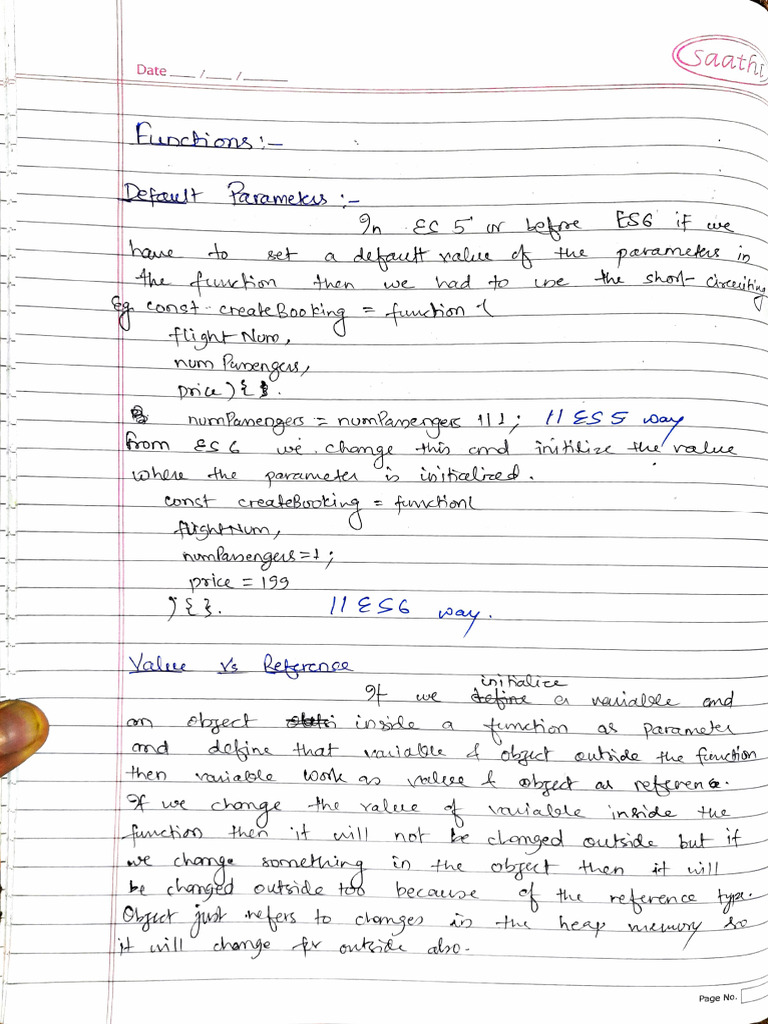 Date ___ / ___ / _____
Saathi
Functions :-
Default Parameters :-
In ES 5 or before ES6 if we
have to set a default value of the parameters in
the function then we had to use the short-circuiting
Eg. const createBooking = function (
flightNum,
numPassengers,
price ) { }.
numPassengers = numPassengers || 1; // ES5 way
from ES6 we change this and initilize the value
where the parameter is initialized.
const createBooking = function(
flightNum,
numPassengers=1;
price = 199
) { }. // ES6 way.
Value Vs Reference
initialize
If we define a variable and
an object inside a function as parameter
and define that variable & object outside the function
then variable work as value & object as reference.
If we change the value of variable inside the
function then it will not be changed outside but if
we change something in the object then it will
be changed outside too because of the reference type.
Object just refers to changes in the heap memory so
it will change for outside also.
Page No.